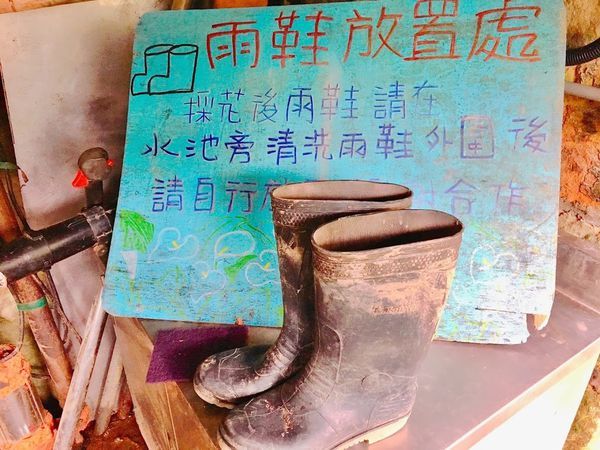 雨鞋放置處
採花後雨鞋請在
水池旁清洗雨鞋外圍後
請自行放 合作